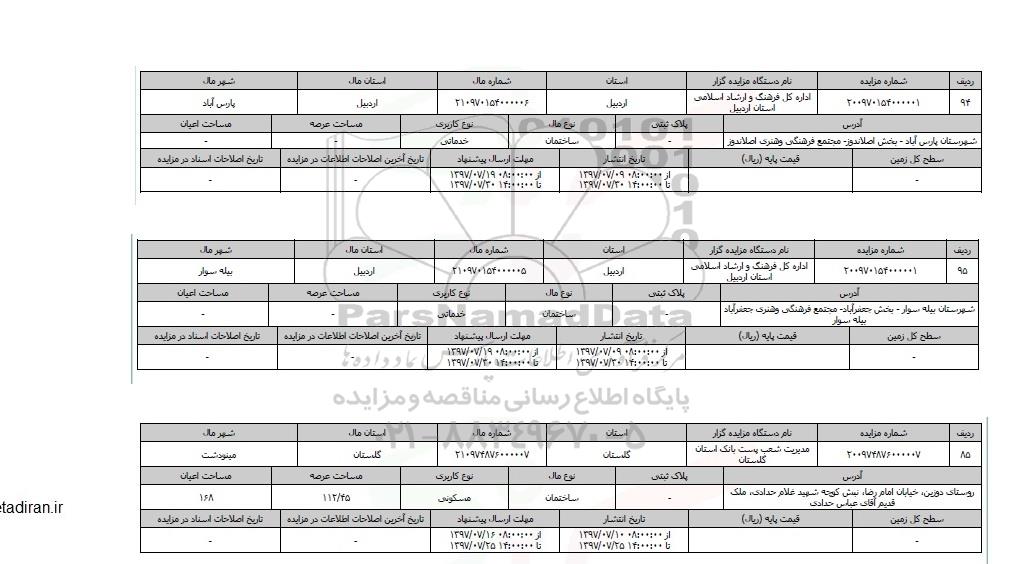 ردیف شماره مزایده نام دستگاه مزایده گزار استان شماره مال استان مال شهر مال
۹۴ ۲۰۰۹۷۰۱۵۴۰۰۰۰۰۱ اداره کل فرهنگ و ارشاد اسلامی استان اردبیل اردبیل ۲۱۰۹۷۰۱۵۴۰۰۰۰۰۶ اردبیل پارس آباد
آدرس پلاک ثبتی نوع مال نوع کاربری مساحت عرصه مساحت اعیان
شهرستان پارس آباد - بخش اصلاندوز- مجتمع فرهنگی وهنری اصلاندوز - ساختمان خدماتی - -
سطح کل زمین قیمت پایه (ریال) تاریخ انتشار مهلت ارسال پیشنهاد تاریخ آخرین اصلاحات اطلاعات در مزایده تاریخ اصلاحات اسناد در مزایده
- از ۰۸:۰۰:۰۰ ۱۳۹۷/۰۷/۰۹ از ۰۸:۰۰:۰۰ ۱۳۹۷/۰۷/۱۹ - -
تا ۱۴:۰۰:۰۰ ۱۳۹۷/۰۷/۳۰ تا ۱۴:۰۰:۰۰ ۱۳۹۷/۰۷/۳۰
ردیف شماره مزایده نام دستگاه مزایده گزار استان شماره مال استان مال شهر مال
۹۵ ۲۰۰۹۷۰۱۵۴۰۰۰۰۰۱ اداره کل فرهنگ و ارشاد اسلامی استان اردبیل اردبیل ۲۱۰۹۷۰۱۵۴۰۰۰۰۰۵ اردبیل بیله سوار
آدرس پلاک ثبتی نوع مال نوع کاربری مساحت عرصه مساحت اعیان
شهرستان بیله سوار - بخش جعفرآباد- مجتمع فرهنگی وهنری جعفرآباد - ساختمان خدماتی - -
بیله سوار
ParsNamadData
سطح کل زمین قیمت پایه (ریال) تاریخ انتشار مهلت ارسال پیشنهاد تاریخ آخرین اصلاحات اطلاعات در مزایده تاریخ اصلاحات اسناد در مزایده
- از ۰۸:۰۰:۰۰ ۱۳۹۷/۰۷/۰۹ از ۰۸:۰۰:۰۰ ۱۳۹۷/۰۷/۱۹ - -
تا ۱۴:۰۰:۰۰ ۱۳۹۷/۰۷/۳۰ تا ۱۴:۰۰:۰۰ ۱۳۹۷/۰۷/۳۰
پایگاه اطلاع رسانی مناقصه و مزایده
۰۲۱-۸۸۳۴۹۶۷۰-۵
ردیف شماره مزایده نام دستگاه مزایده گزار استان شماره مال استان مال شهر مال
۸۵ ۲۰۰۹۷۴۸۷۶۰۰۰۰۰۷ مدیریت شعب پست بانک استان گلستان گلستان ۲۱۰۹۷۴۸۷۶۰۰۰۰۰۷ گلستان مینودشت
آدرس پلاک ثبتی نوع مال نوع کاربری مساحت عرصه مساحت اعیان
روستای دوزین، خیابان امام رضا، نبش کوچه شهید غلام حدادی، ملک - ساختمان مسکونی ۱۱۲/۴۵ ۱۶۸
قدیم آقای عباس حدادی
سطح کل زمین قیمت پایه (ریال) تاریخ انتشار مهلت ارسال پیشنهاد تاریخ آخرین اصلاحات اطلاعات در مزایده تاریخ اصلاحات اسناد در مزایده
- از ۰۸:۰۰:۰۰ ۱۳۹۷/۰۷/۱۰ از ۰۸:۰۰:۰۰ ۱۳۹۷/۰۷/۱۶ - -
تا ۱۴:۰۰:۰۰ ۱۳۹۷/۰۷/۲۵ تا ۱۴:۰۰:۰۰ ۱۳۹۷/۰۷/۲۵
etadiran.ir